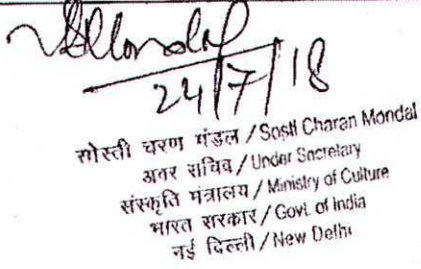 SMondal
24/7/18
सोस्ती चरण मंडल / Sosti Charan Mondal
अवर सचिव / Under Secretary
संस्कृति मंत्रालय / Ministry of Culture
भारत सरकार / Govt. of India
नई दिल्ली / New Delhi